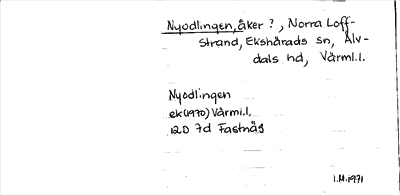 Nyodlingen, åker ?, Norra Loff-
strand, Ekshärads sn, Älv-
dals hd, Värml.l.
Nyodlingen
ek (1970) Värml.l.
12D 7d Fastnäs
I.M.1971